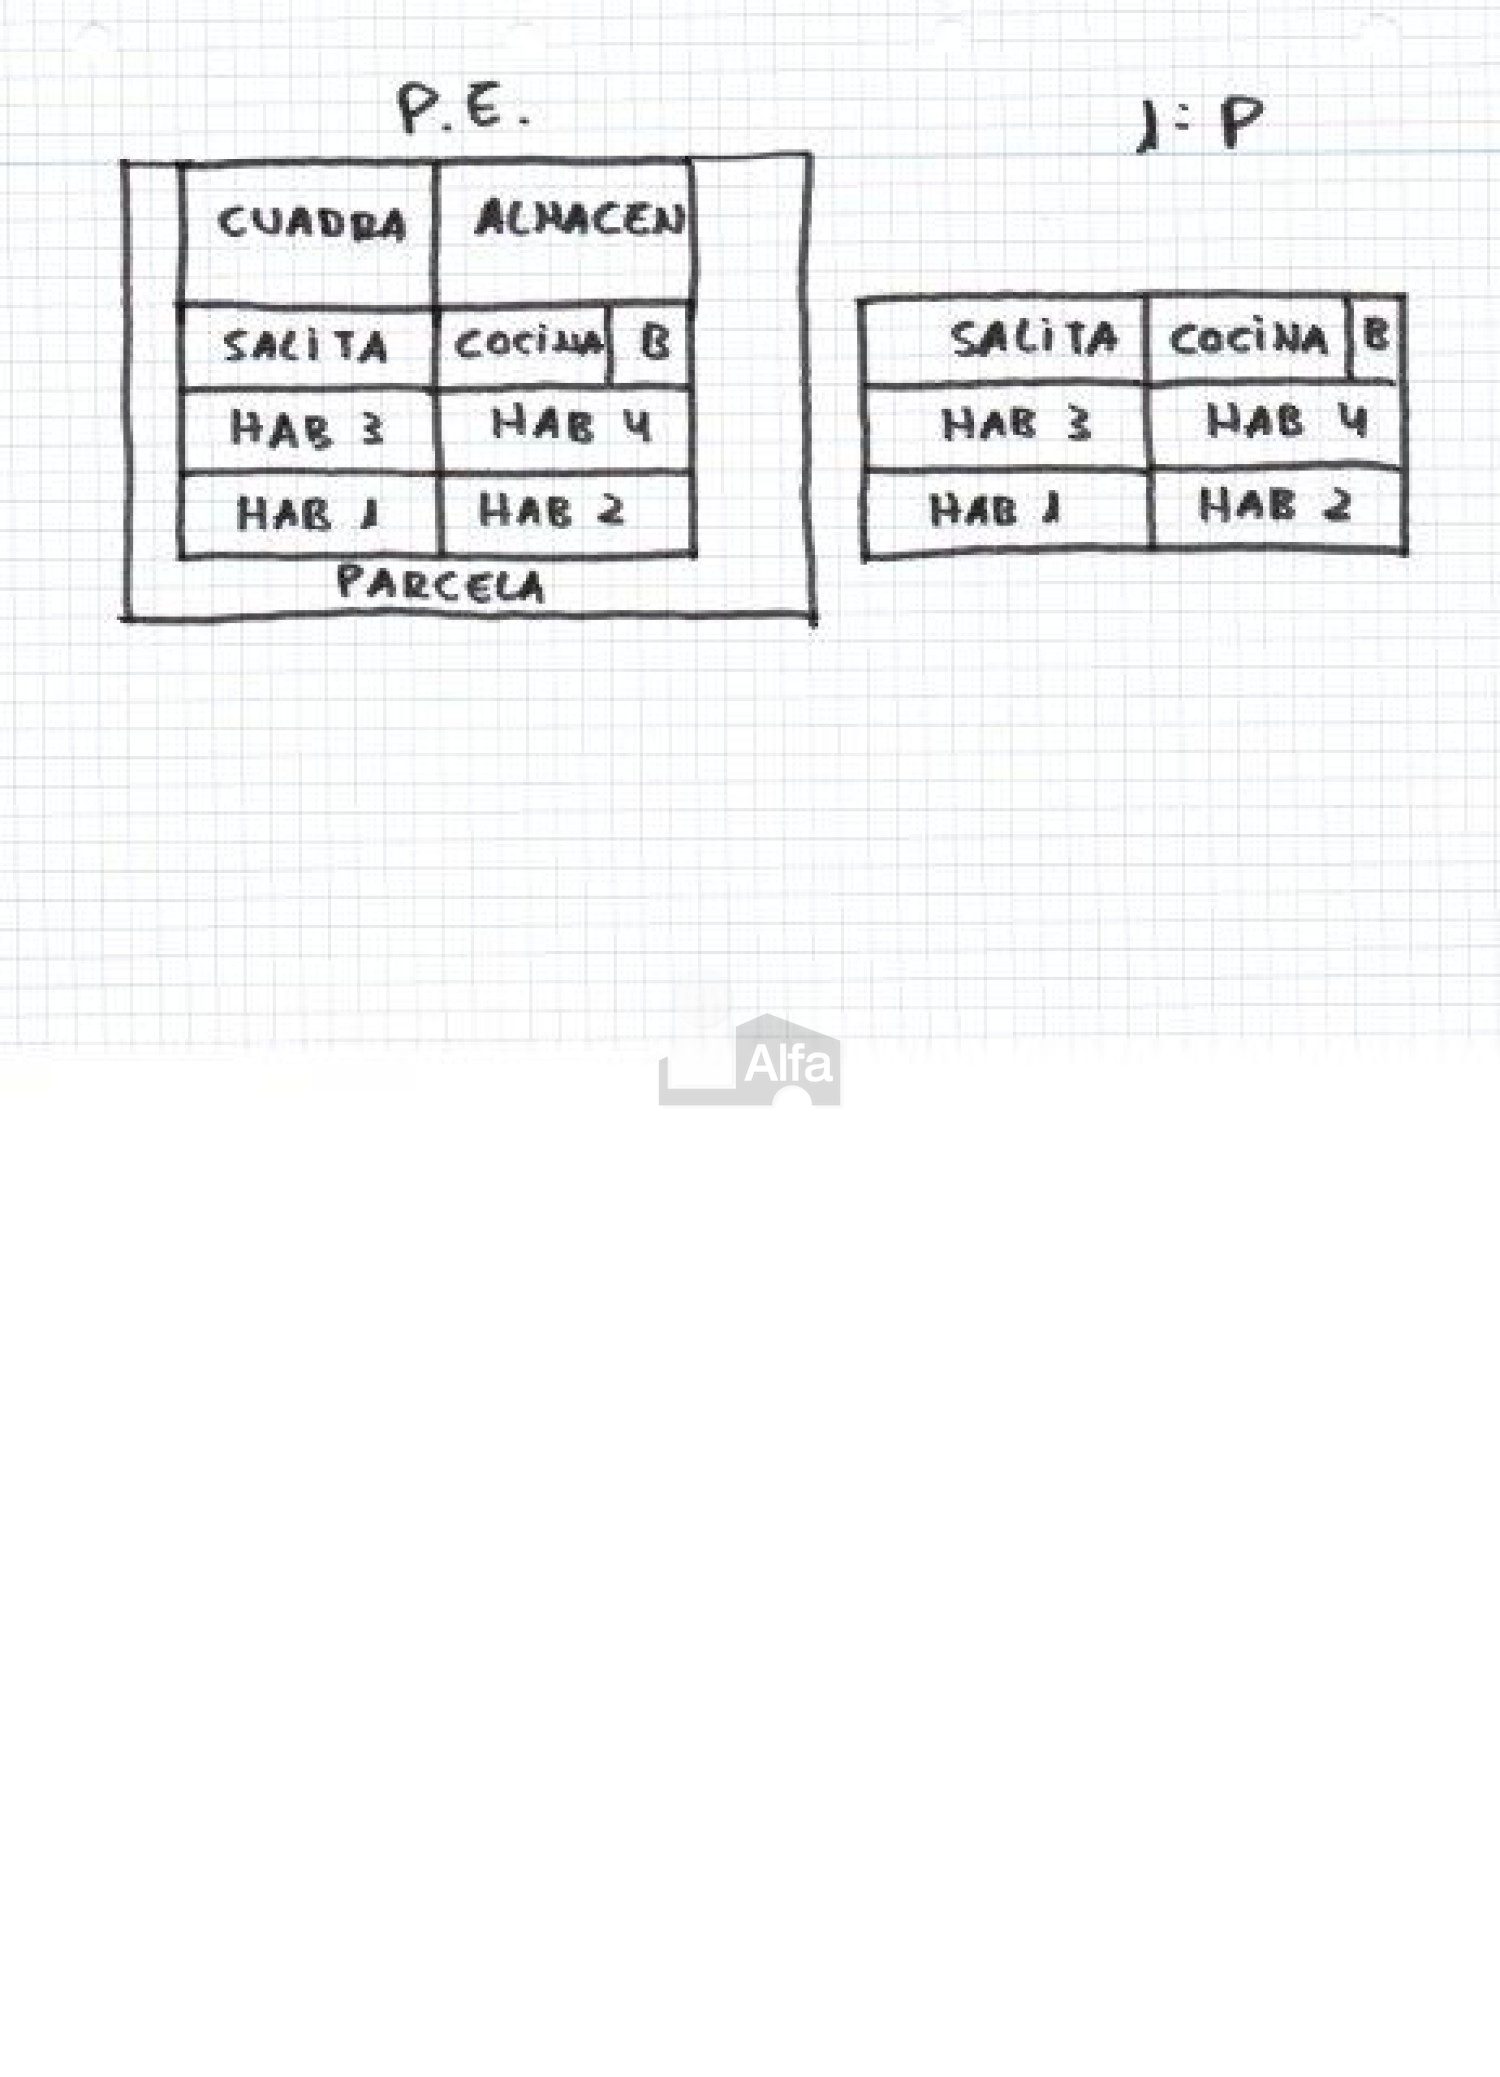 P.E.
CUADRA ALMACEN
SALITA COCINA B
HAB 3 HAB 4
HAB 1 HAB 2
PARCELA
1=P
SALITA COCINA B
HAB 3 HAB 4
HAB 1 HAB 2
Alfa